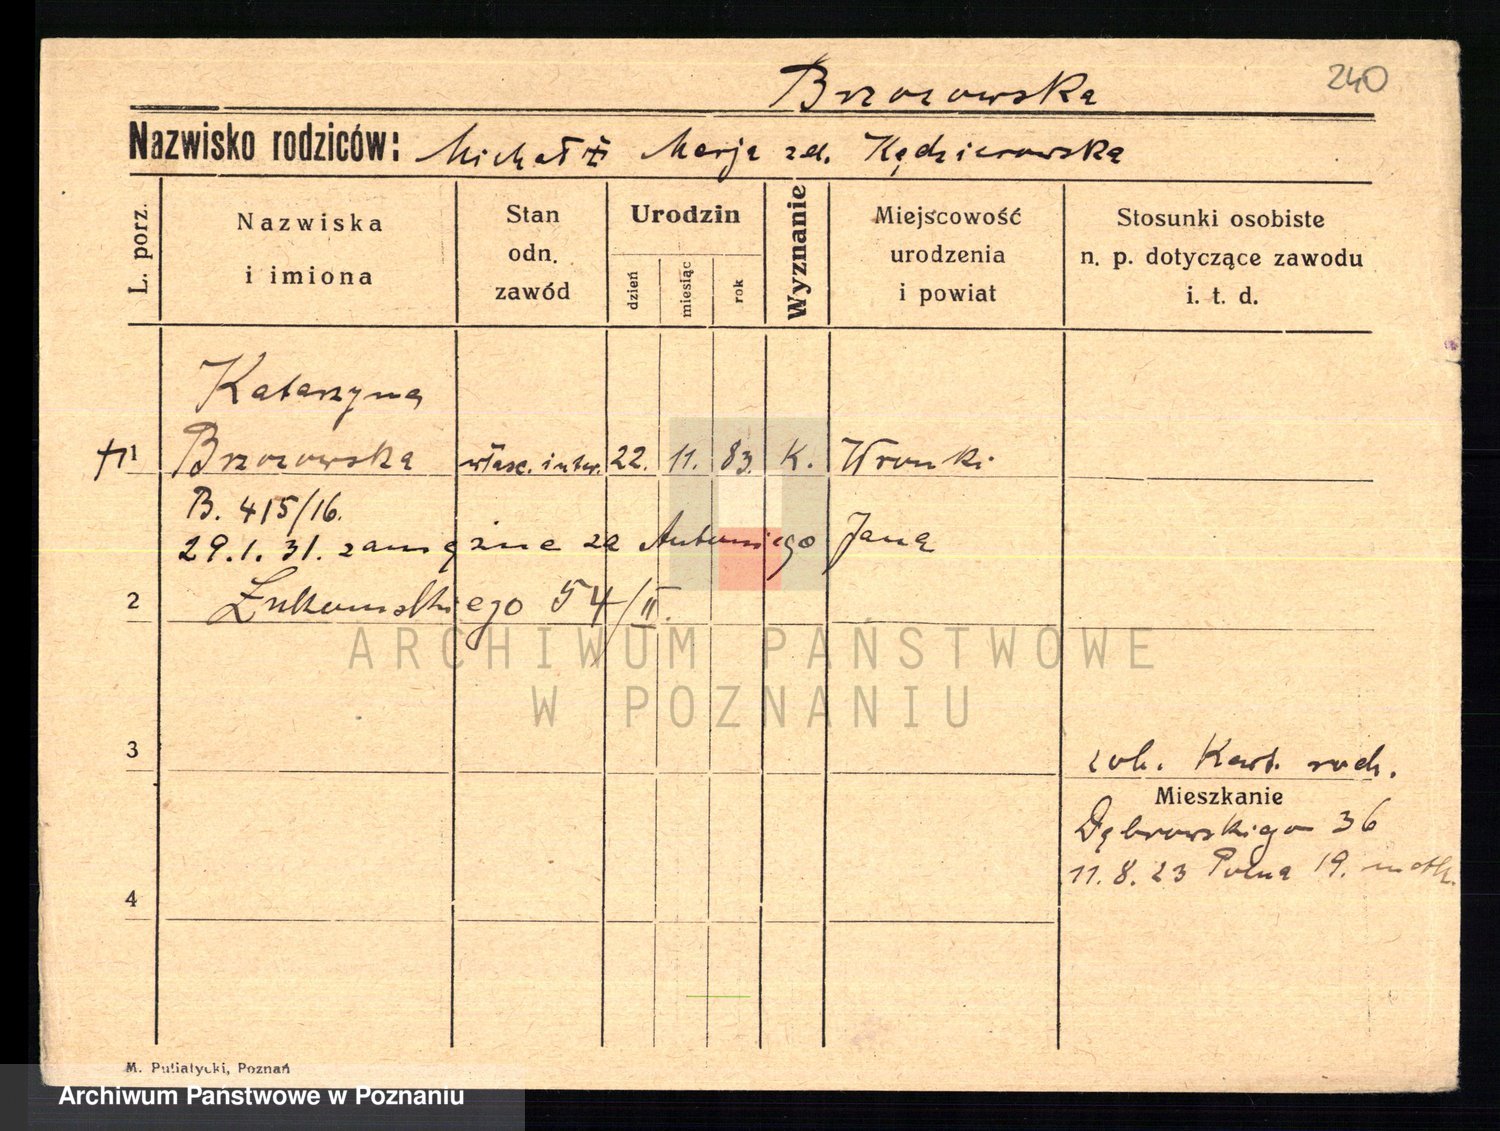 Brzozowska
240
Nazwisko rodziców: Michał Marja zd. Kędzierowska
L. porz.
Nazwiska
i imiona
Stan
odn.
zawód
Urodzin
dzień
miesiąc
rok
Wyznanie
Miejscowość
urodzenia
i powiat
Stosunki osobiste
n. p. dotyczące zawodu
i. t. d.
Katarzyna
1 Brzozowska właśc. inter. 22. 11. 83. K. Wronki
B. 415/16.
29.1.31. zamężna za Antoniego Jana
2 54/II.
3
zob. Kart. rodz.
Mieszkanie
Dąbrowskiego 36
11. 8. 23 Polna 19.
4
M. Putiatycki, Poznań
ARCHIWUM PAŃSTWOWE
W POZNANIU
Archiwum Państwowe w Poznaniu